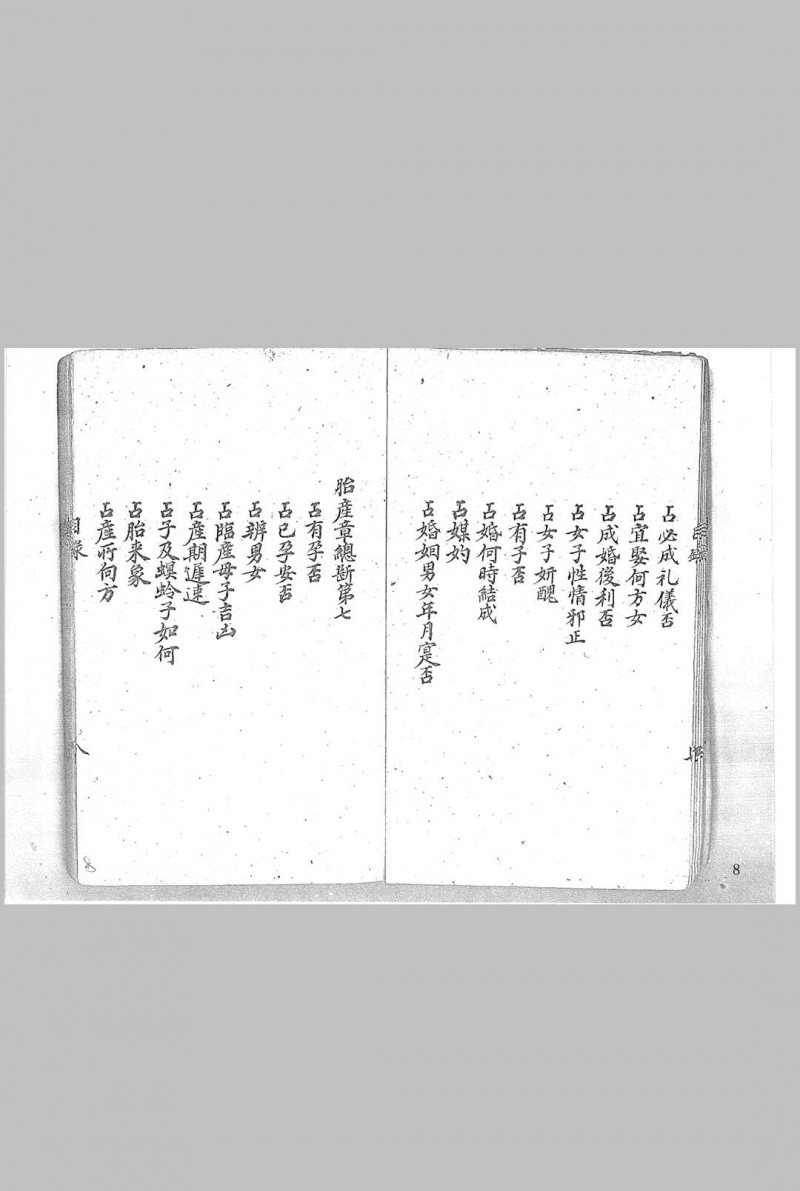 占必成礼儀否
占宜娶何方女
占成婚後利否
占女子性情邪正
占女子妍醜
占有子否
占婚何時結成
占媒妁
占婚姻男女年月寔否
胎產章總斷第七
占有孕否
占已孕安否
占辨男女
占臨產母子吉凶
占產期遲速
占子及螟蛉子如何
占胎来象
占產所向方
目录
八
8
8